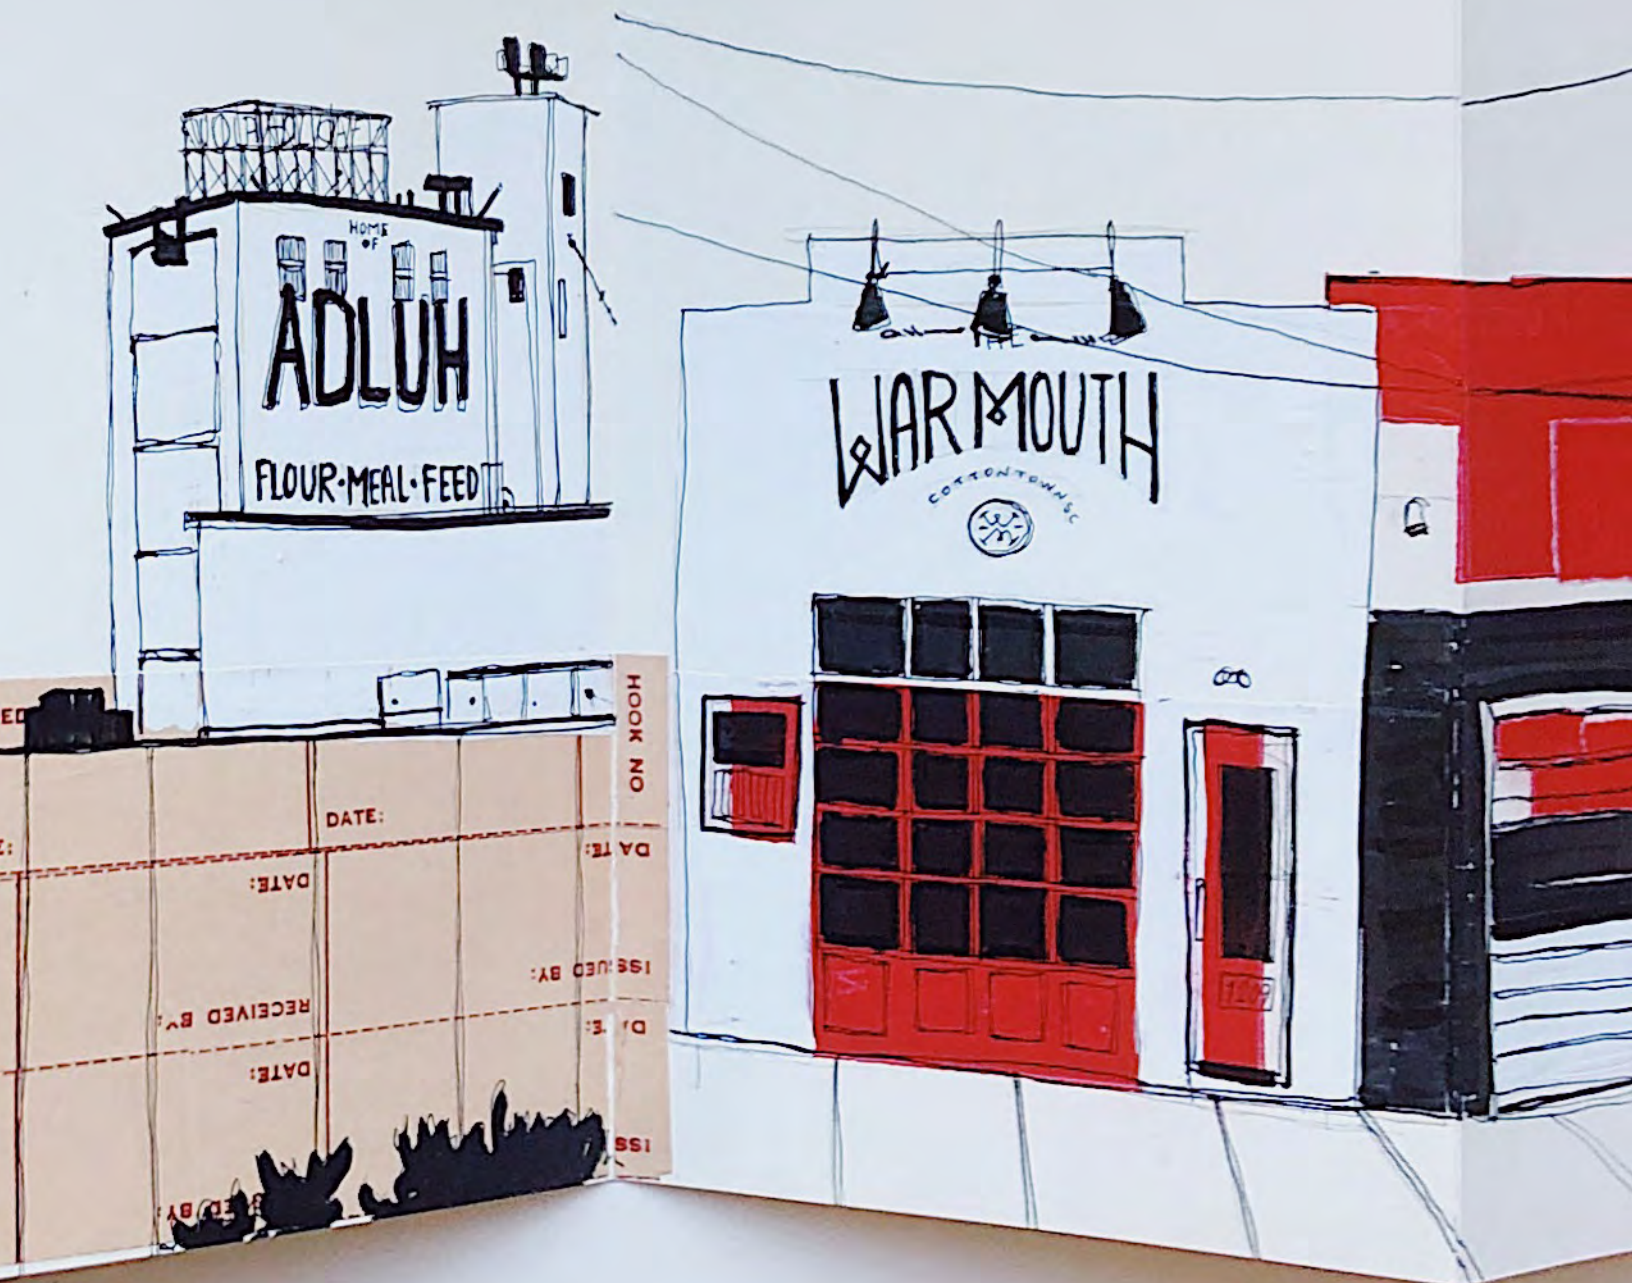 HOME
OF
ADLUH
FLOUR·MEAL·FEED
THE
WARMOUTH
COTTONTOWN SC
WM
1209
ED
HOOK NO
DATE:
E:
DATE:
DATE:
ISSUED BY:
RECEIVED BY:
DATE:
DATE:
ISS
ED BY: